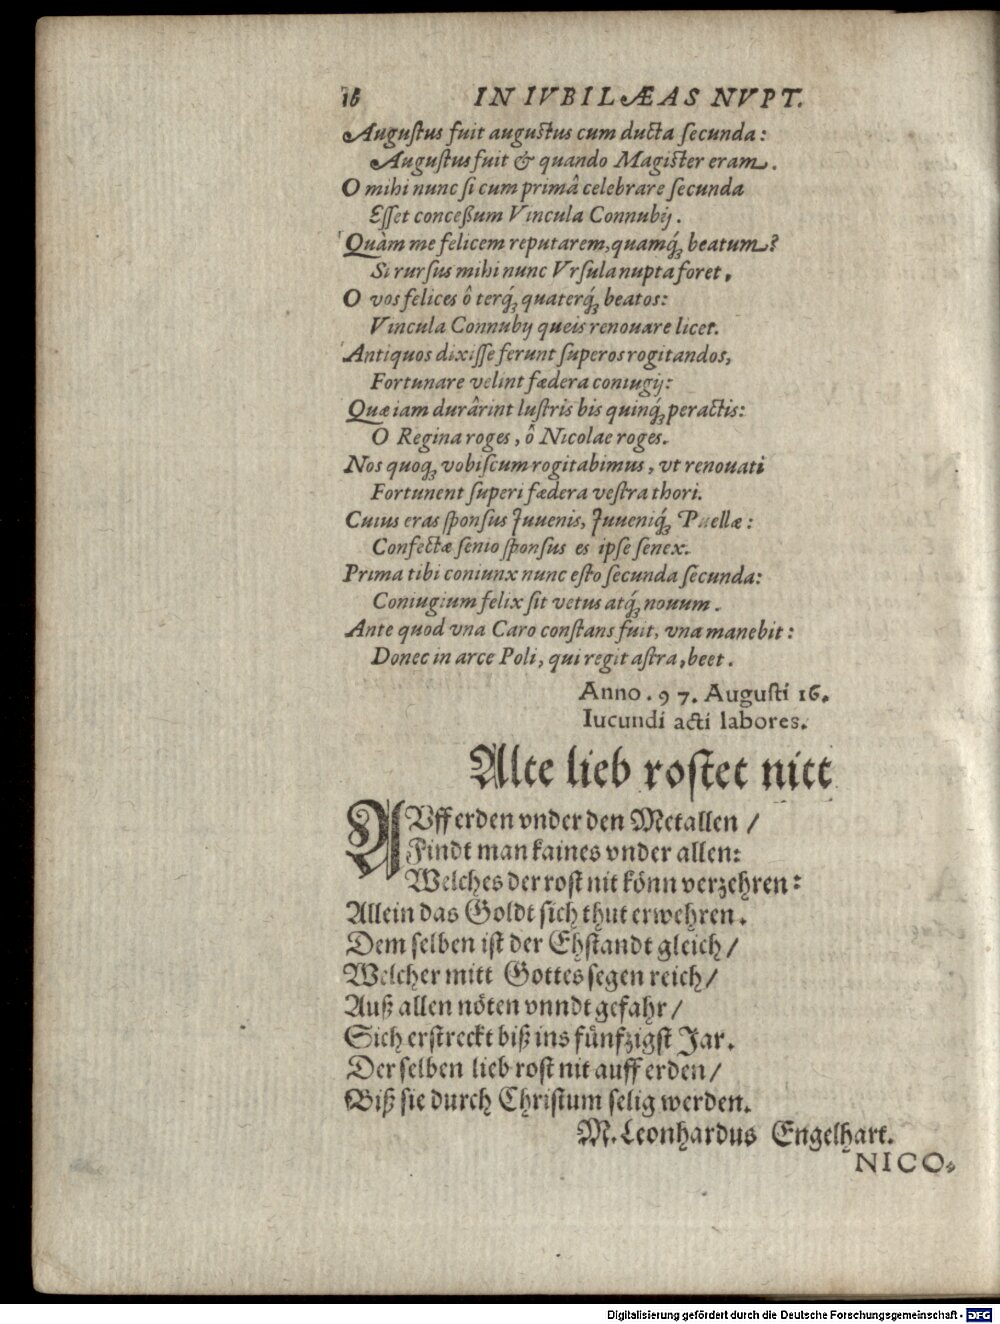 16 IN IVBILÆAS NVPT.
Auguſtus fuit auguſtus cum ducta ſecunda:
Auguſtus fuit & quando Magiſter eram.
O mihi nunc ſi cum primâ celebrare ſecunda
Eſſet conceßum Vincula Connubij.
Quàm me felicem reputarem, quamq́; beatum?
Si rurſus mihi nunc Vrſula nupta foret.
O vos felices ô terq́; quaterq́; beatos:
Vincula Connubij queis renouare licet.
Antiquos dixiſſe ferunt ſuperos rogitandos,
Fortunare velint fædera coniugij:
Quæ iam durârint luſtris bis quinq́; peractis:
O Regina roges, ô Nicolae roges.
Nos quoq; vobiſcum rogitabimus, vt renouati
Fortunent ſuperi fædera veſtra thori.
Cuius eras ſponſus Juuenis, Juueniq́; Puellæ:
Confectæ ſenio ſponſus es ipſe ſenex.
Prima tibi coniunx nunc eſto ſecunda ſecunda:
Coniugium felix ſit vetus atq́; nouum.
Ante quod vna Caro conſtans fuit, vna manebit:
Donec in arce Poli, qui regit aſtra, beet.
Anno . 97. Auguſti 16.
Iucundi acti labores.
Alte lieb roſtet nitt
AVff erden vnder den Metallen /
Findt man kaines vnder allen:
Welches der roſt nit könn verzehren:
Allein das Goldt ſich thut erwehren.
Dem ſelben iſt der Ehſtandt gleich /
Welcher mitt Gottes ſegen reich /
Auß allen nöten vnndt gefahr /
Sich erſtreckt biß ins fünfzigſt Jar.
Der ſelben lieb roſt nit auff erden /
Biß ſie durch Chriſtum ſelig werden.
M. Leonhardus Engelhart.
NICO-
Digitalisierung gefördert durch die Deutsche Forschungsgemeinschaft - DFG